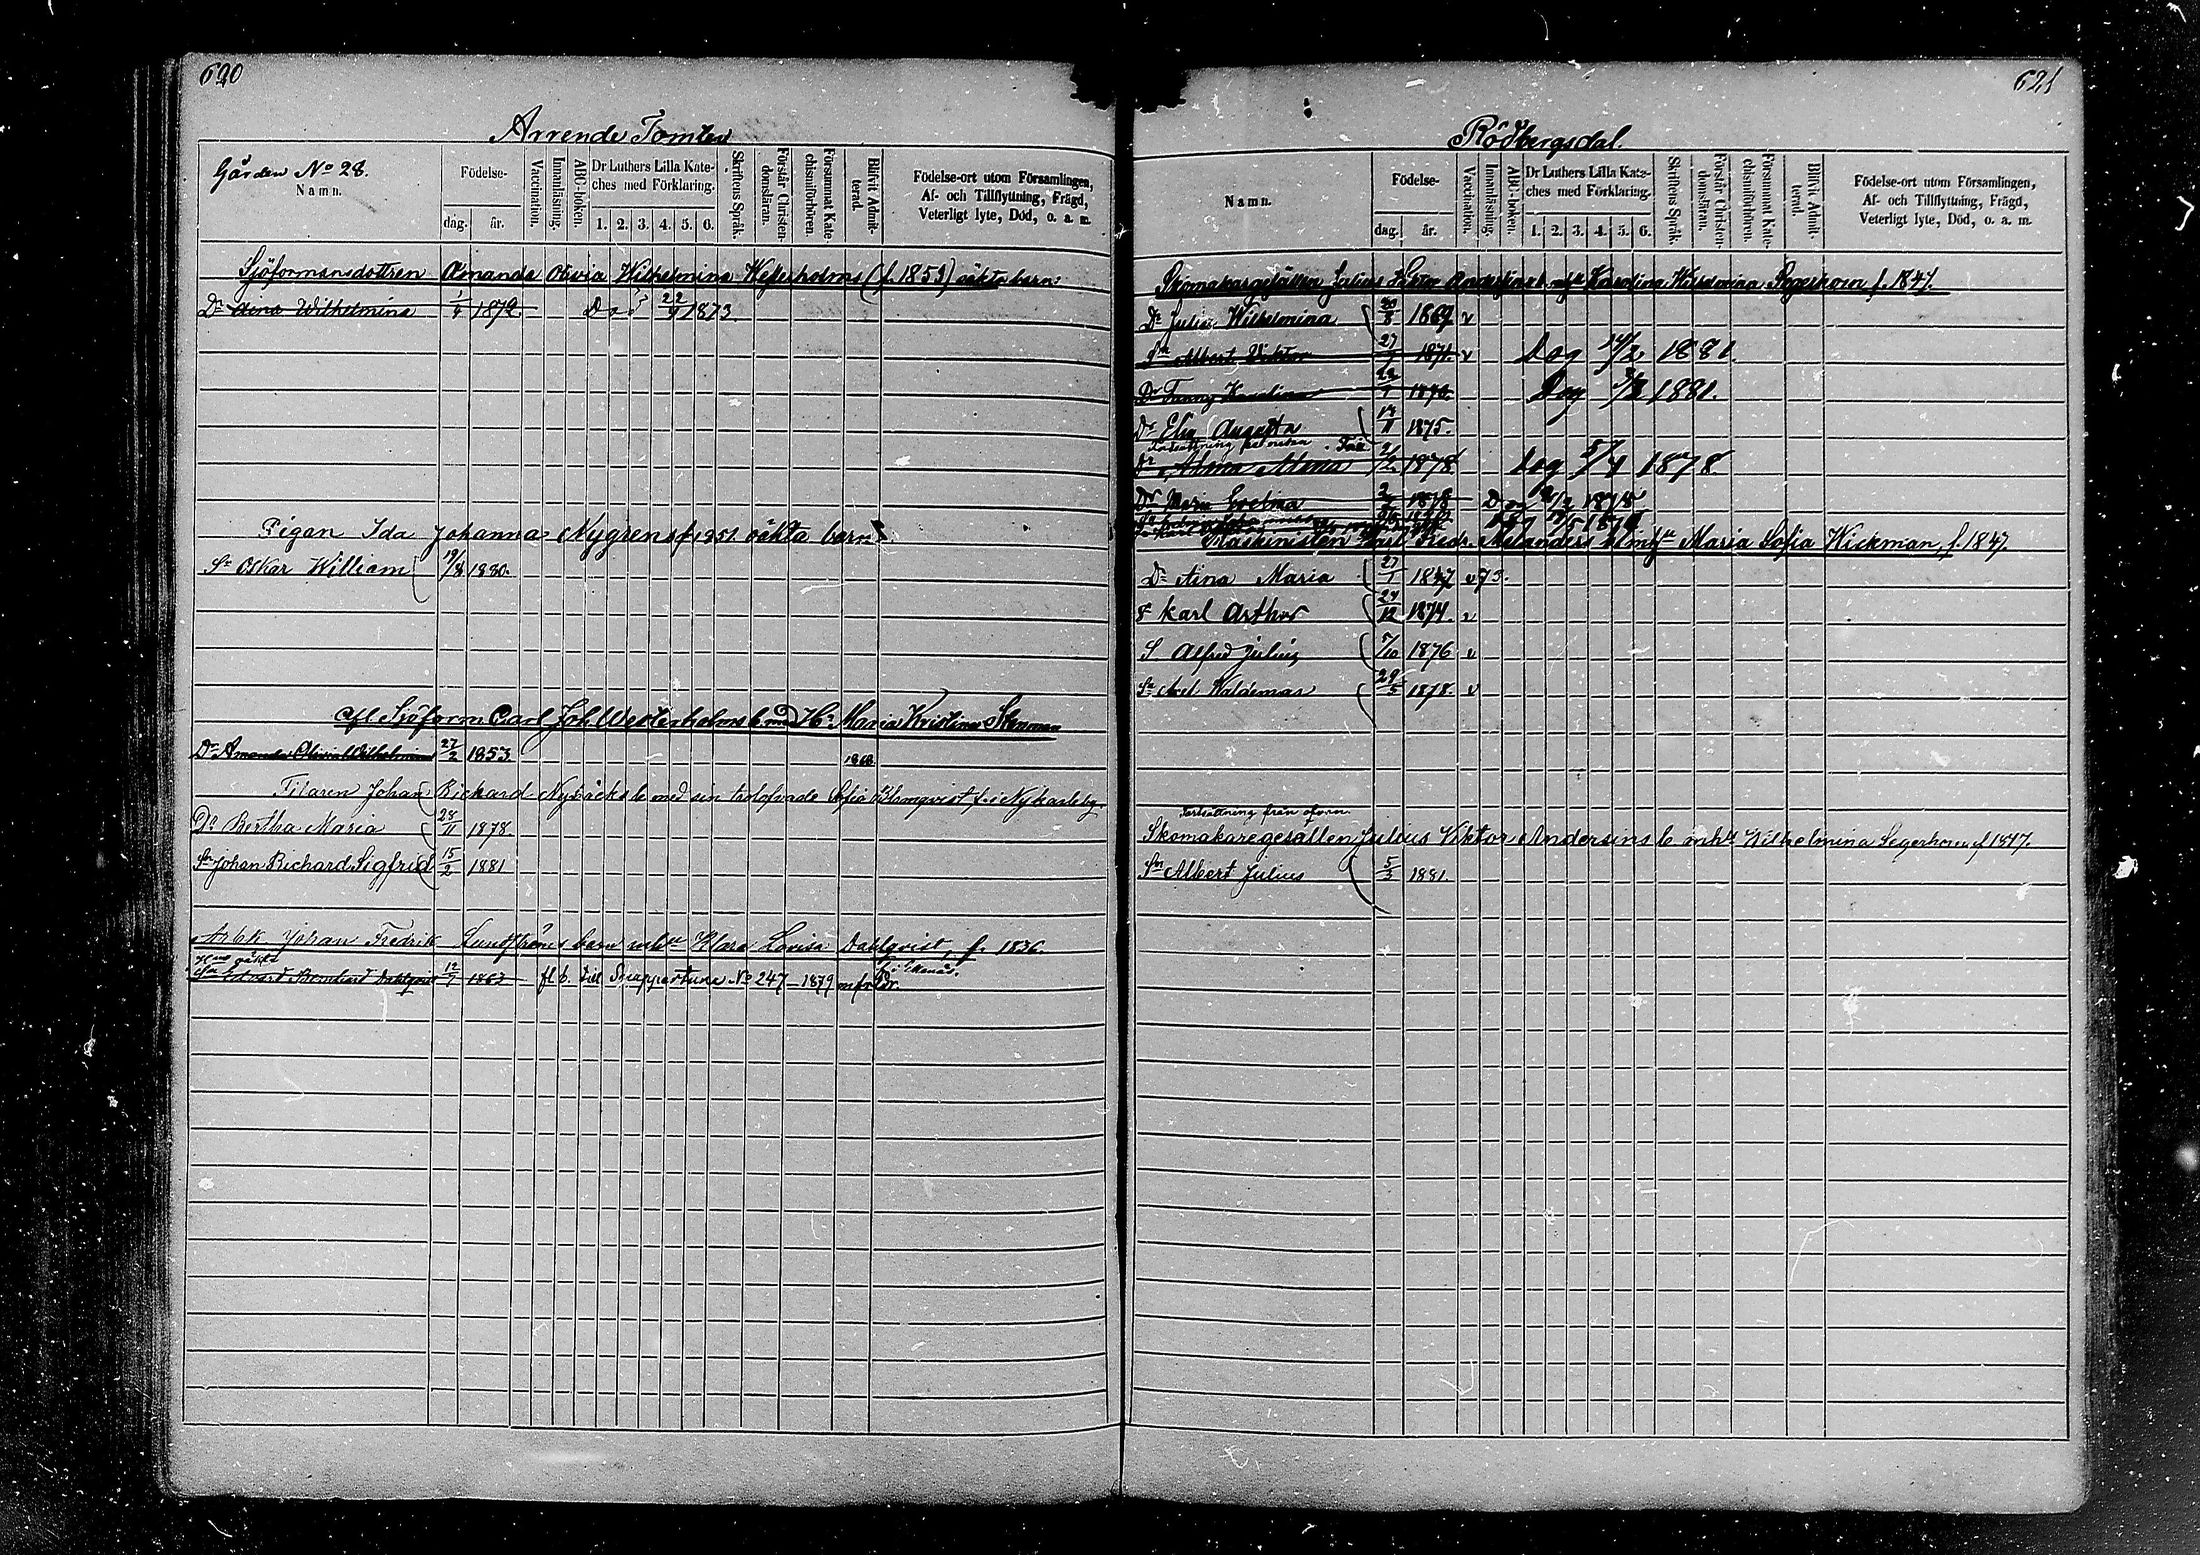 620
Arrende Tomten
Gården No 28.
Namn.
Födelse-
dag.
år.
Vaccination.
Innanläsning.
ABC-boken.
Dr Luthers Lilla Kate-
ches med Förklaring.
1. 2. 3. 4. 5. 6.
Skriftens Språk.
Förstår Christen-
domsläran.
Försummat Kate-
chismiförhören.
Blifvit Admit-
terad.
Födelse-ort utom Församlingen,
Af- och Tillflyttning, Frägd,
Veterligt lyte, Död, o. a. m.
Sjöformansdottren Amanda Olivia Wilhelmina Westerholms (f. 1853) oäkta barn:
Dr Aina Wilhelmina 1872. Död 22/9 1873.
Pigan Ida Johanna Nygrens f 1851 oäkta barn
Sn Oskar William 19/8 1880.
Afl Sjöform Carl Joh Westerholms b md H: Maria Kristina Stenman
Dr Amanda Olivia Wilhelmina 27/2 1853
Filaren Johan Rickard Nybäcks b med sin trolofvade Sofia f. i Nykarleby.
Dr Bertha Maria 28/11 1878.
Sn Johan Richard Sigfrid 15/2 1881
Arbk Johan Fredrik Lundströms barn mhu Klara Lovisa Dahlqvist, f. 1836.
Hus oäkta
Sn Edvard Bernhard Dahlqvist 12/7 1863 fl b. till Snappertuna No 247 1879
621
Rödbergsdal.
Namn.
Födelse-
dag.
år.
Vaccination.
Innanläsning.
ABC-boken.
Dr Luthers Lilla Kate-
ches med Förklaring.
1. 2. 3. 4. 5. 6.
Skriftens Språk.
Förstår Christen-
domsläran.
Försummat Kate-
chismiförhören.
Blifvit Admit-
terad.
Födelse-ort utom Församlingen,
Af- och Tillflyttning, Frägd,
Veterligt lyte, Död, o. a. m.
Skomakargesällen Julius Viktor Andersins b mhu Karolina Wilhelmina Segerhorn f. 1847.
Dr Julia Wilhelmina 30/8 1869 v
Sn Albert Viktor 1871. v Dog 14/2 1881.
Dr Fanny Karolina 1873. Dog 1881.
Dr Elin Augusta 14/11 1875.
Dr Alma Maria 2/2 1878 dog 5/4 1878
Dr Maria Evelina 1878
Maskinisten Karl Fredr. Melanders b mhu Maria Sofia Wickman, f. 1847.
Dr Aina Maria 27/1 v 73.
Sn Karl Arthur 24/12 1874. v
S. Alfred Julius 5/10 1876 v
Sn Axel Waldemar 29/5 1878. v
Fortsättning från ofvan.
Skomakaregesällen Julius Viktor Andersins b mhu Wilhelmina Segerhorn f 1847.
Sn Albert Julius 5/3 1881.